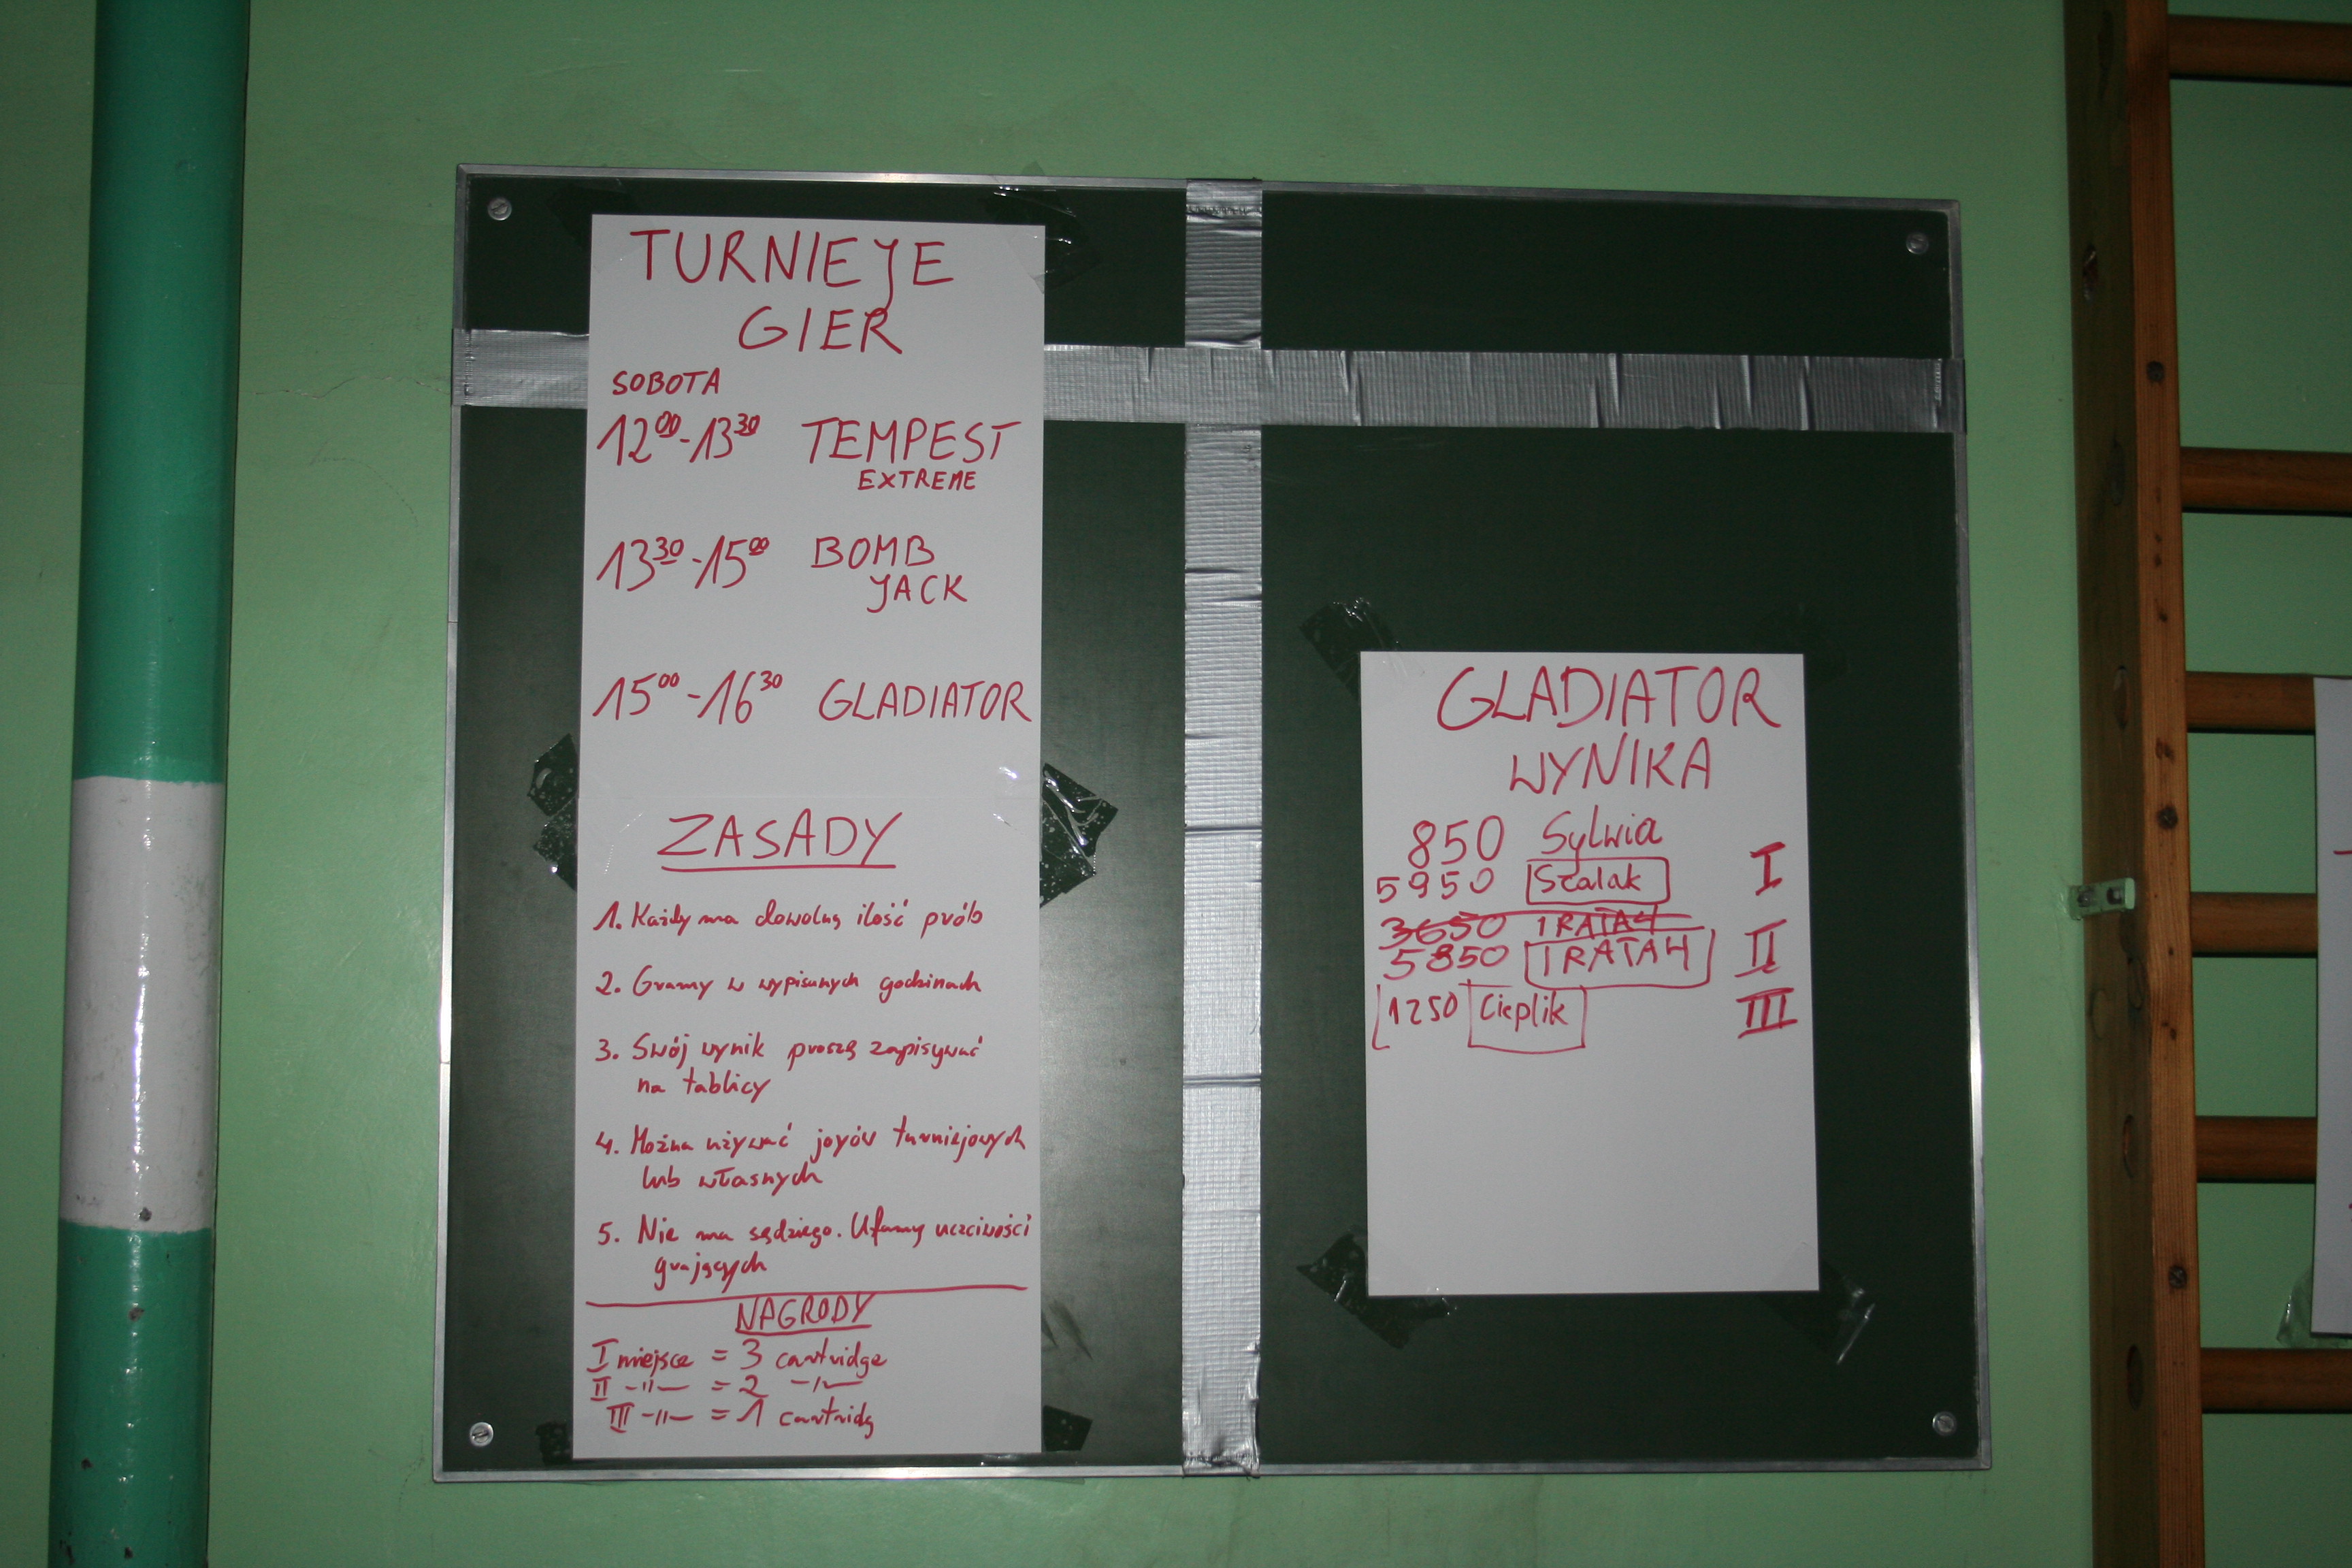 TURNIEJE
GIER
SOBOTA
12⁰⁰-13³⁰ TEMPEST
EXTREME
13³⁰-15⁰⁰ BOMB
JACK
15⁰⁰-16³⁰ GLADIATOR
ZASADY
1. Każdy ma dowolną ilość prób
2. Gramy w wypisanych godzinach
3. Swój wynik proszę zapisywać
na tablicy
4. Można używać joyów turniejowych
lub własnych
5. Nie ma sędziego. Ufamy uczciwości
grających
NAGRODY
I miejsce = 3 cartridge
II -"- = 2 -"-
III -"- = 1 cartridg
GLADIATOR
WYNIKA
850 Sylwia
5950 Szalak I
3650 IRATA4
5850 IRATA4 II
1250 Cieplik III